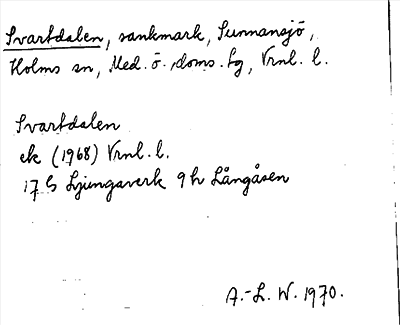 Svartdalen, sankmark, Sunnansjö,
Holms sn, Med. ö. doms. fg, Vrnl. l.
Svartdalen
ek (1968) Vrnl. l.
17 G Ljungaverk 9 h Långåsen
A.-L. W. 1970.